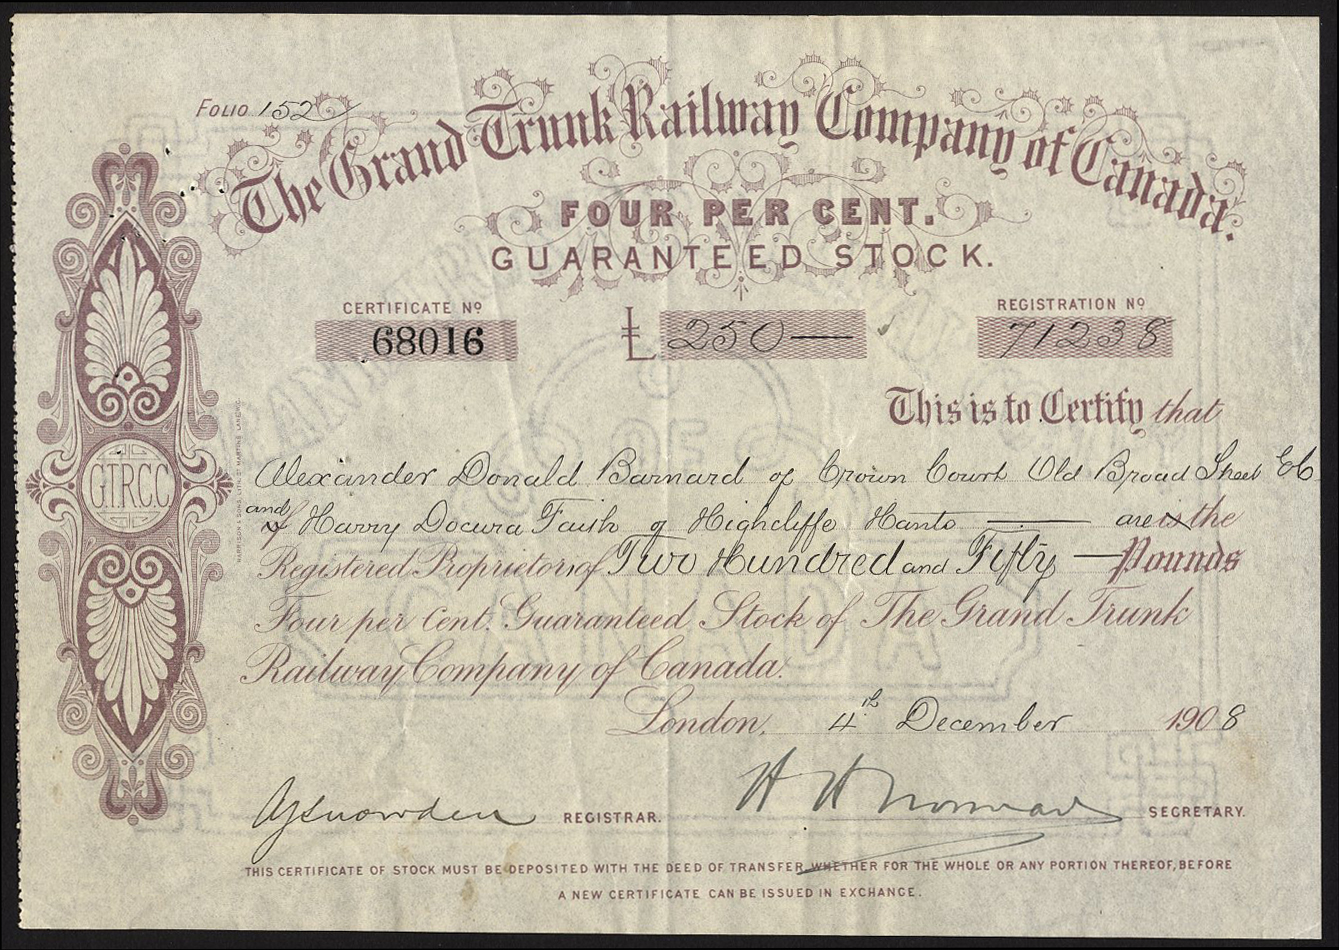 FOLIO 152
The Grand Trunk Railway Company of Canada.
FOUR PER CENT.
GUARANTEED STOCK.
CERTIFICATE Nº
REGISTRATION Nº
68016
£ 250 —
71238
This is to Certify that
Alexander Donald Barnard of Crown Court Old Broad Street EC
and of Harry Harry Docura Faish of Highcliffe Hants — are is the
Registered Proprietors of Two Hundred and Fifty — Pounds
Four per Cent. Guaranteed Stock of The Grand Trunk
Railway Company of Canada.
London, 4th December 1908
REGISTRAR.
H H Norman SECRETARY.
THIS CERTIFICATE OF STOCK MUST BE DEPOSITED WITH THE DEED OF TRANSFER, WHETHER FOR THE WHOLE OR ANY PORTION THEREOF, BEFORE
A NEW CERTIFICATE CAN BE ISSUED IN EXCHANGE.
G.T.R.C.C
HARRISON & SONS, LITH. ST MARTINS LANE, WC.
CANADA